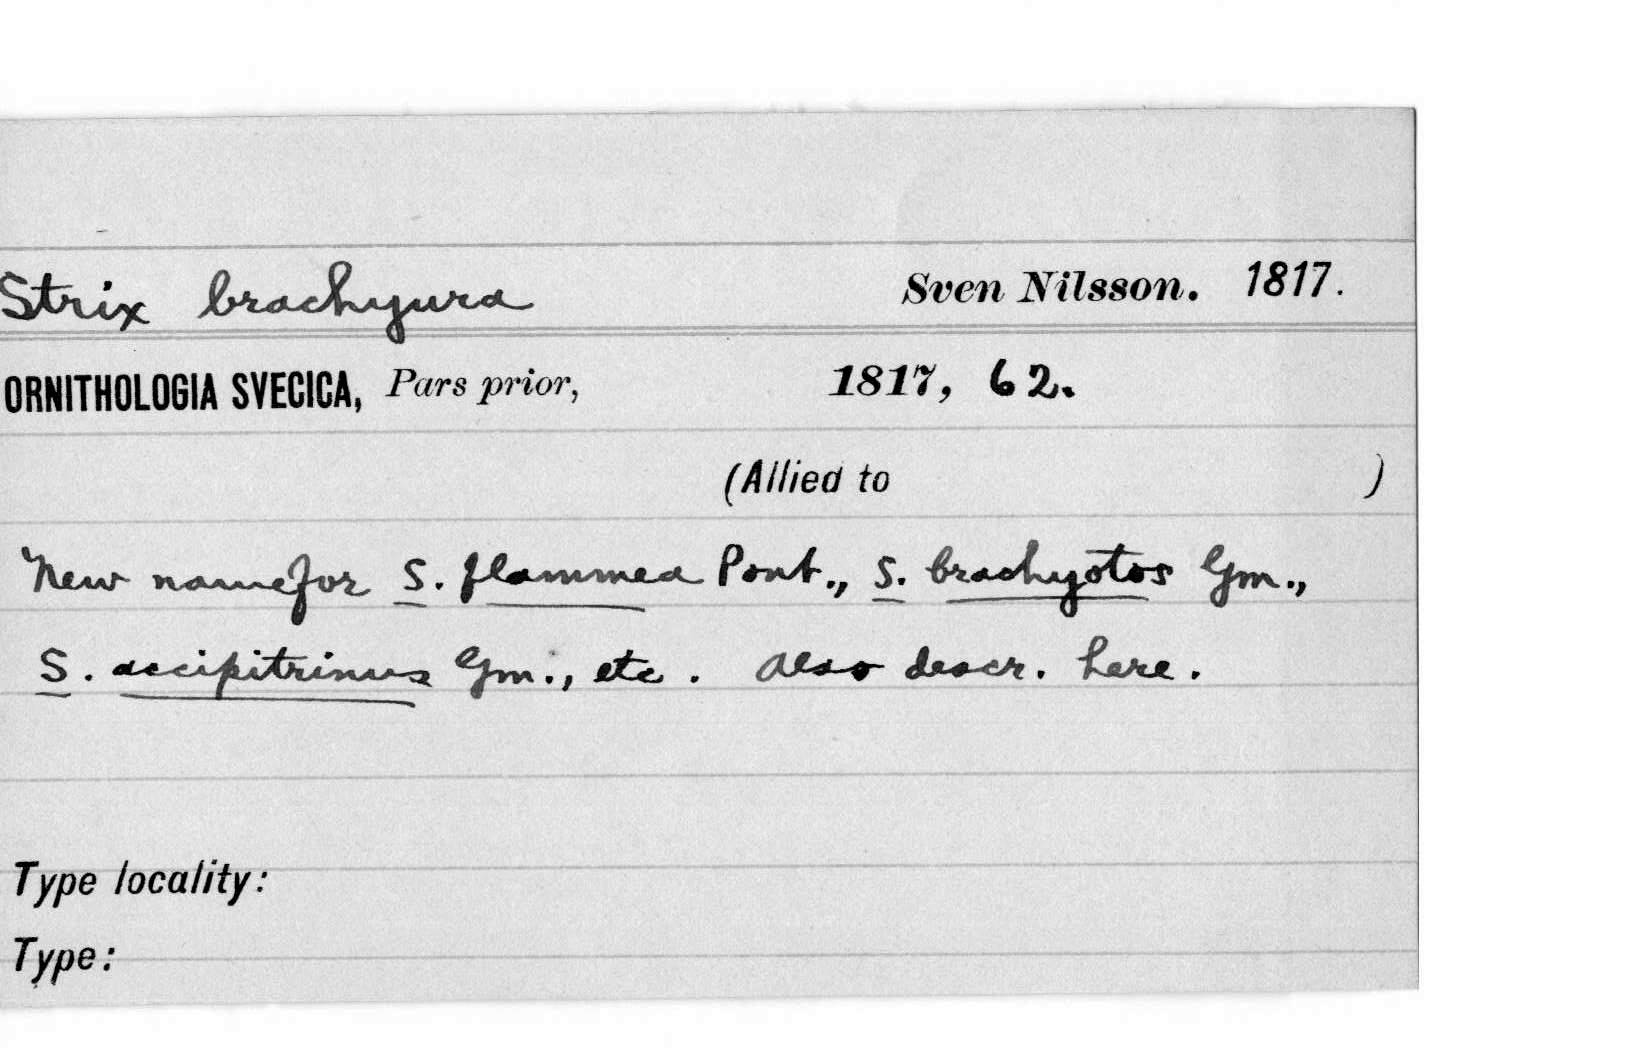 Strix brachyura Sven Nilsson. 1817.
ORNITHOLOGIA SVECICA, Pars prior, 1817, 62.
(Allied to )
New name for S. flammea Pont., S. brachyotos Gm.,
S. accipitrinus Gm., etc. Also descr. here.
Type locality:
Type: